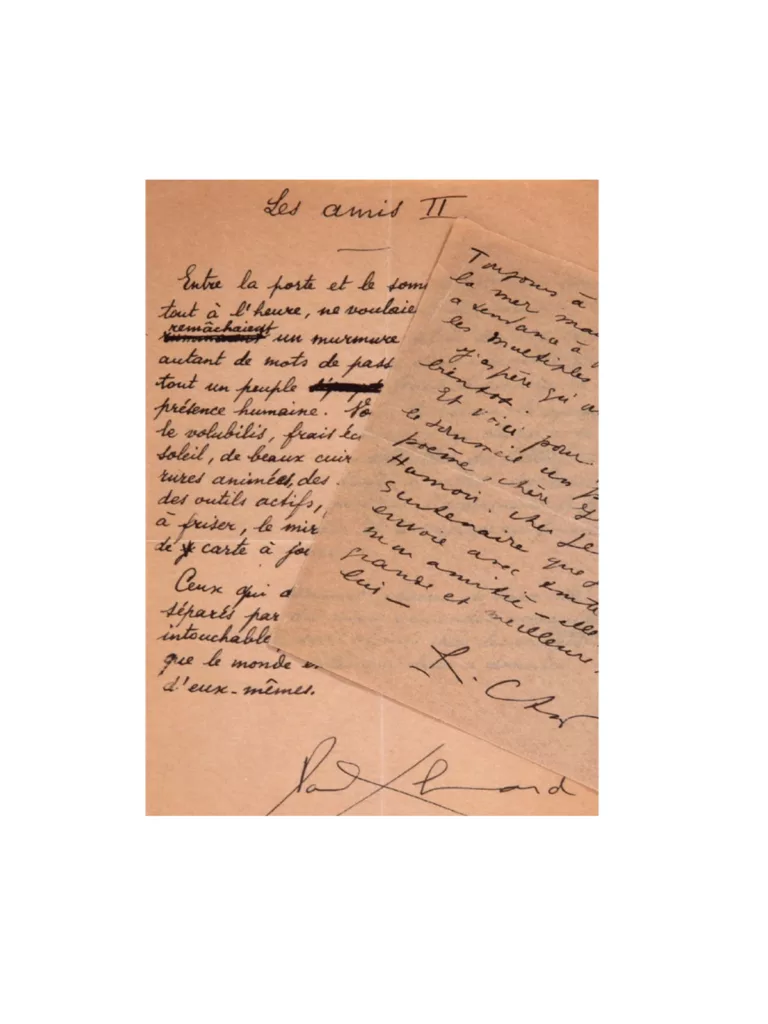 Les amis II
Entre la porte et le som
tout à l'heure, ne voulaie
remâchaient
un murmure
autant de mots de pass
tout un peuple
présence humaine. Vo
le volubilis, frais éc
soleil, de beaux cuir
rures animées, des
des outils actifs,
à friser, le mir
de carte à jou
Ceux qui d
séparés par
intouchable
que le monde e
d'eux-mêmes.
Paul Eluard
Toujours à
la mer mau
a tendance à
les multiples
J'espère qu'a
bientôt.
Et voici pour
le sommeil un p
poème, chère Y
que
envoie avec toute
mon amitié – elle
grande et meilleure
lui –
R. Char